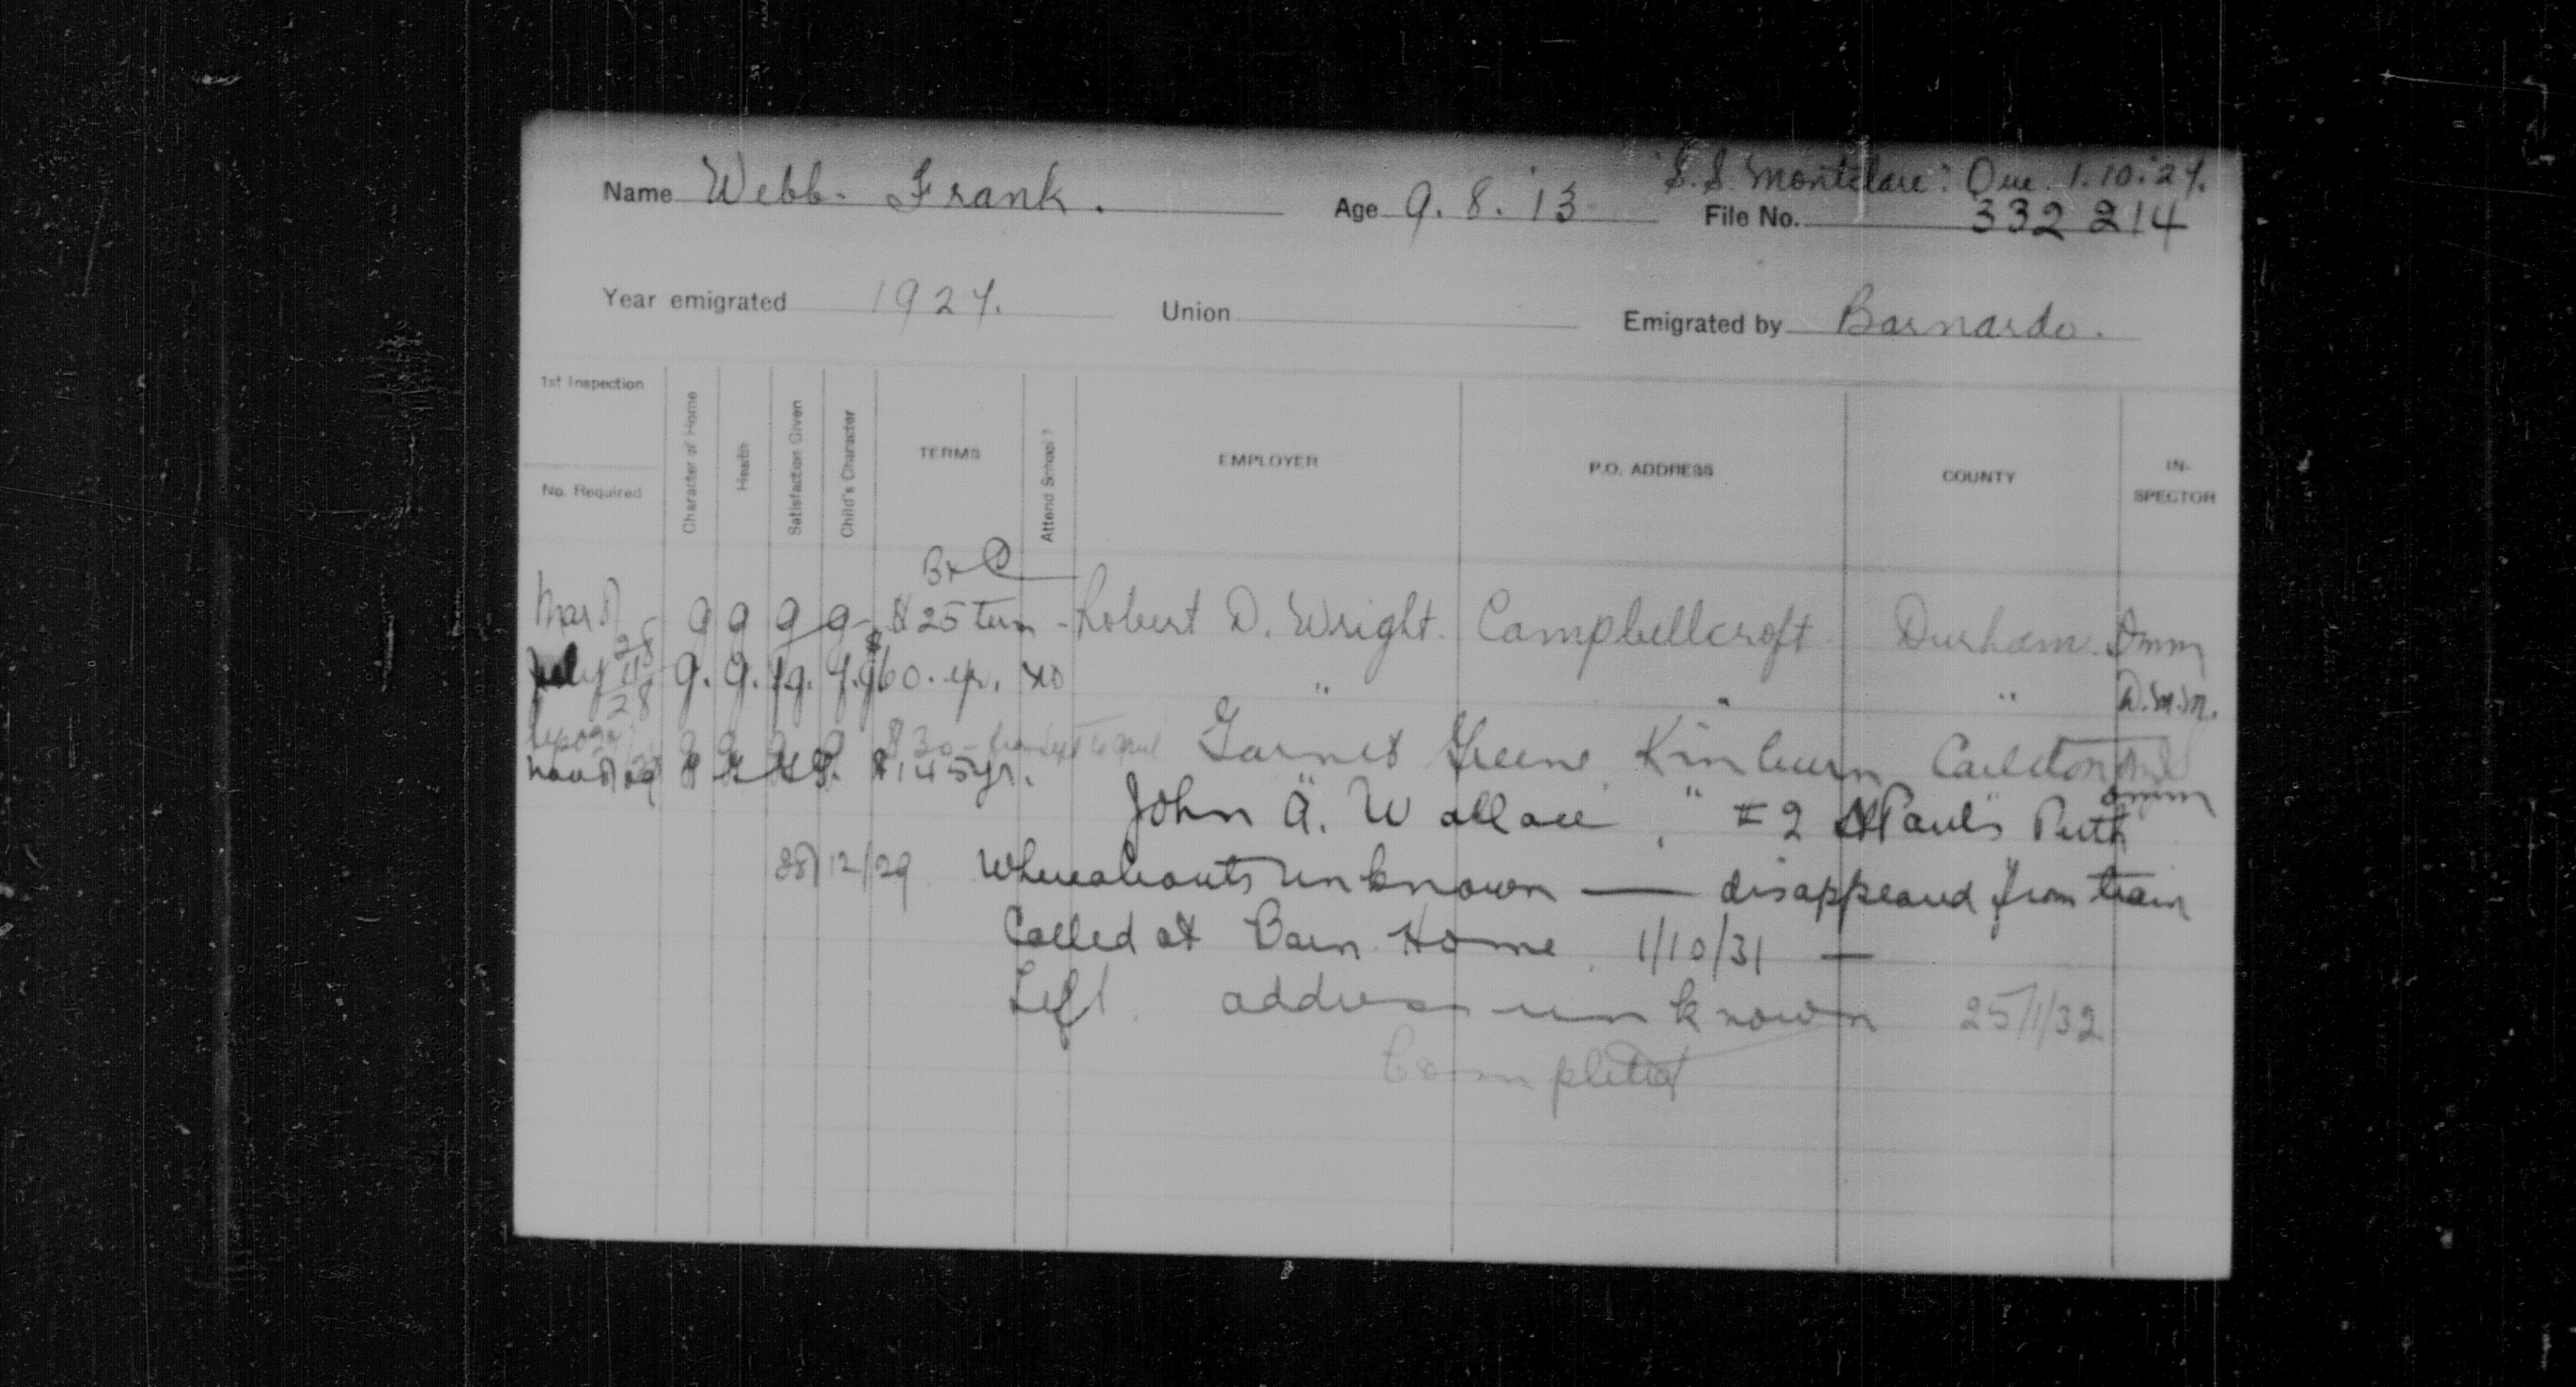 S.S. Montclare: Que. 1.10.27.
Name Webb- Frank. Age 9.8.'13 File No. 332 214
Year emigrated 1927. Union Emigrated by Barnardo.
1st Inspection
No. Required
Character of Home
Health
Satisfaction Given
Child's Character
TERMS
Attend School?
EMPLOYER
P.O. ADDRESS
COUNTY
IN-
SPECTOR
B+C
Mar 8/28 g g g g- $25 term - Robert D. Wright. Campbellcroft Durham. Dmm
July 11/28 g. g. fg. f.g $60. yr. no " " " D.M.M.
$30- from Sept to April Garnet Greene Kinburn Carleton
Nov 8/29 $145 yr. John A. Wallace, " #2 St Pauls Perth Dmm
28/12/29 Whereabouts unknown — disappeared from train
Called at Barn Home. 1/10/31 —
Left address unknown 25/1/32
Completed